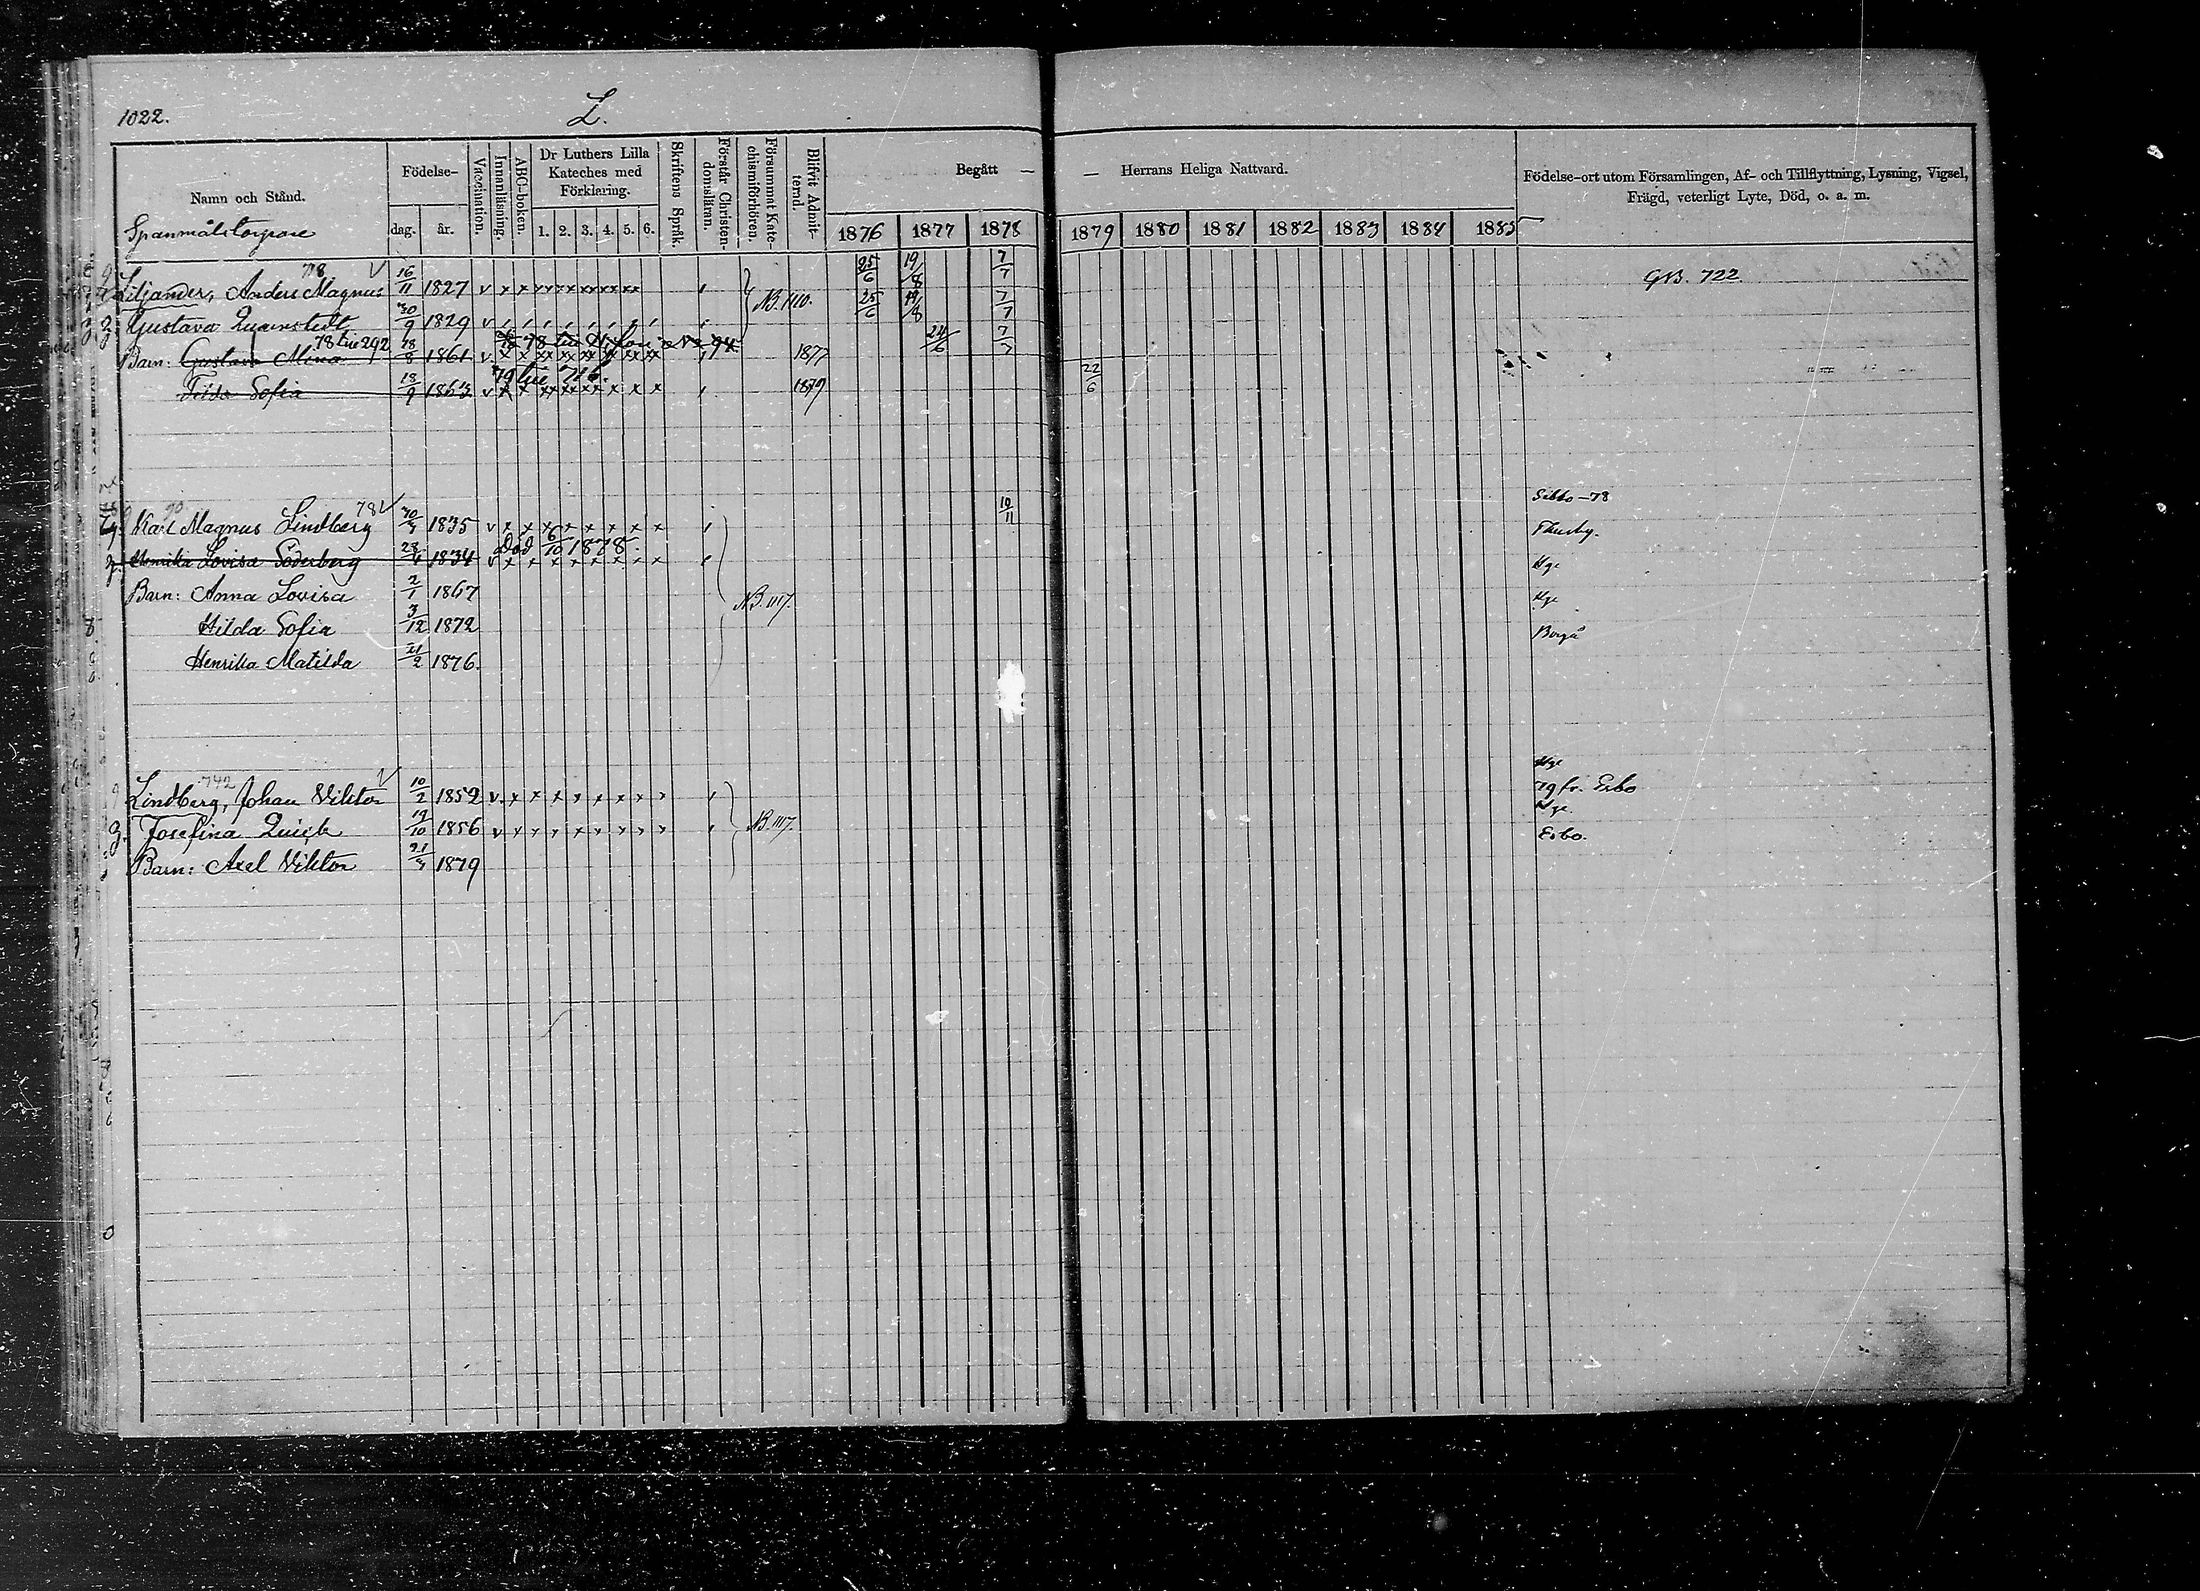 1022.
L.
Namn och Stånd.
Födelse-
dag.
år.
Vaccination.
Innanläsning.
ABC-boken.
Dr Luthers Lilla
Kateches med
Förklaring.
1. 2. 3. 4. 5. 6.
Skriftens Språk.
Förstår Christen-
domsläran.
Försummat Kate-
chismiförhören.
Blifvit Admit-
terad.
Begått —
— Herrans Heliga Nattvard.
Födelse-ort utom Församlingen, Af- och Tillflyttning, Lysning, Vigsel,
Frägd, veterligt Lyte, Död, o. a. m.
Spanmålstorpare
1876 1877 1878 1879 1880 1881 1882 1883 1884 1885
718
Liljander, Anders Magnus 16/11 1827 v x x 25/6 19/8 7/7 GB. 722
g Gustava Quarnstedt 30/9 1829 v NB. 1110. 25/6 19/8 7/7
78 till 292
Barn: Gustava Mina 18/8 1861 v 1877 24/6 7/7
79 till 716.
Tilda Sofia 18/9 1863 v 1879 22/6
78 v Sibbo -78
g. Karl Magnus Lindberg 1835 v x x x x x x x x 10/11 Thusby.
Död 6/10 1878.
g Henrika Lovisa Söderberg 28/4 1834 v x x x x x x x x Hge
Barn: Anna Lovisa 2/1 1867 NB. 1117. Hge
Hilda Sofia 3/12 1872 Borgå
Henrika Matilda 21/2 1876.
742 v Hge
Lindberg, Johan Viktor 10/2 1852 v x x x x x x x x 79 fr. Esbo
Hge.
g. Josefina Quick 19/10 1856 v x x x x x x x x NB. 1117. Esbo.
Barn: Axel Viktor 1879